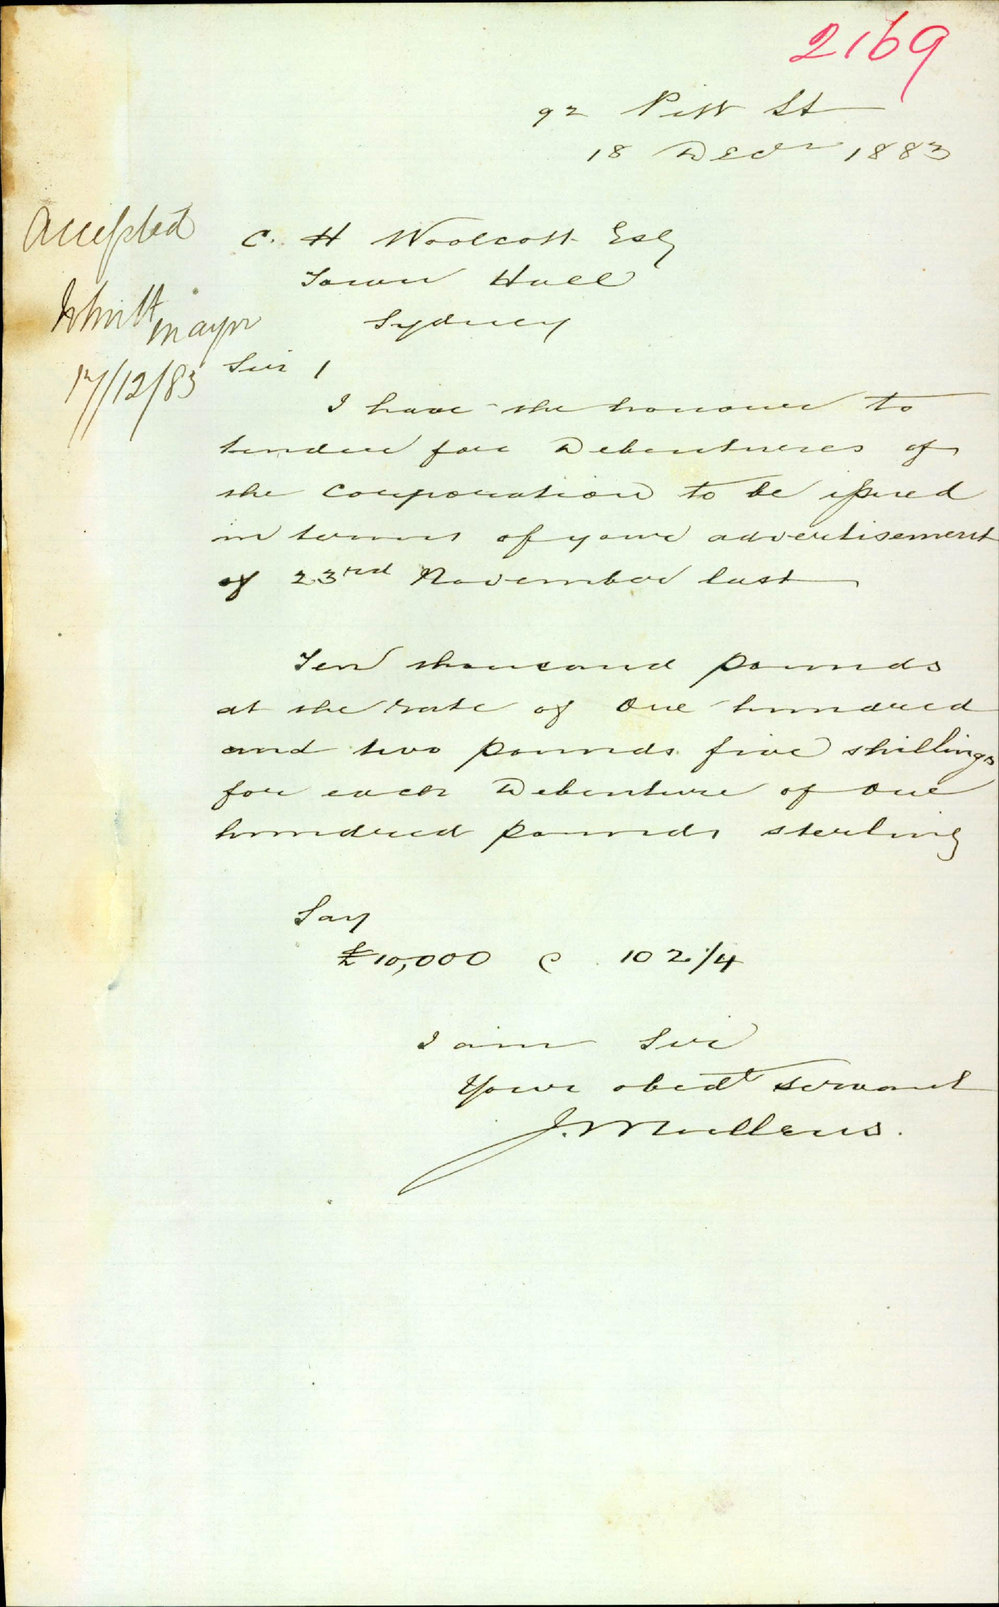 2169
92 Pitt St
18 Decr 1883
Accepted
Mayor
17/12/83
C. H Woolcott Esq
Town Hall
Sydney
Sir,
I have the honour to
tender for Debentures of
the Corporation to be issued
in terms of your advertisement
of 23rd November last
Ten thousand pounds
at the rate of One hundred
and two pounds five shillings
for each Debenture of One
hundred pounds sterling
Say
£10,000 @ 102 1/4
I am Sir
Your obedt servant
J. Mullens.